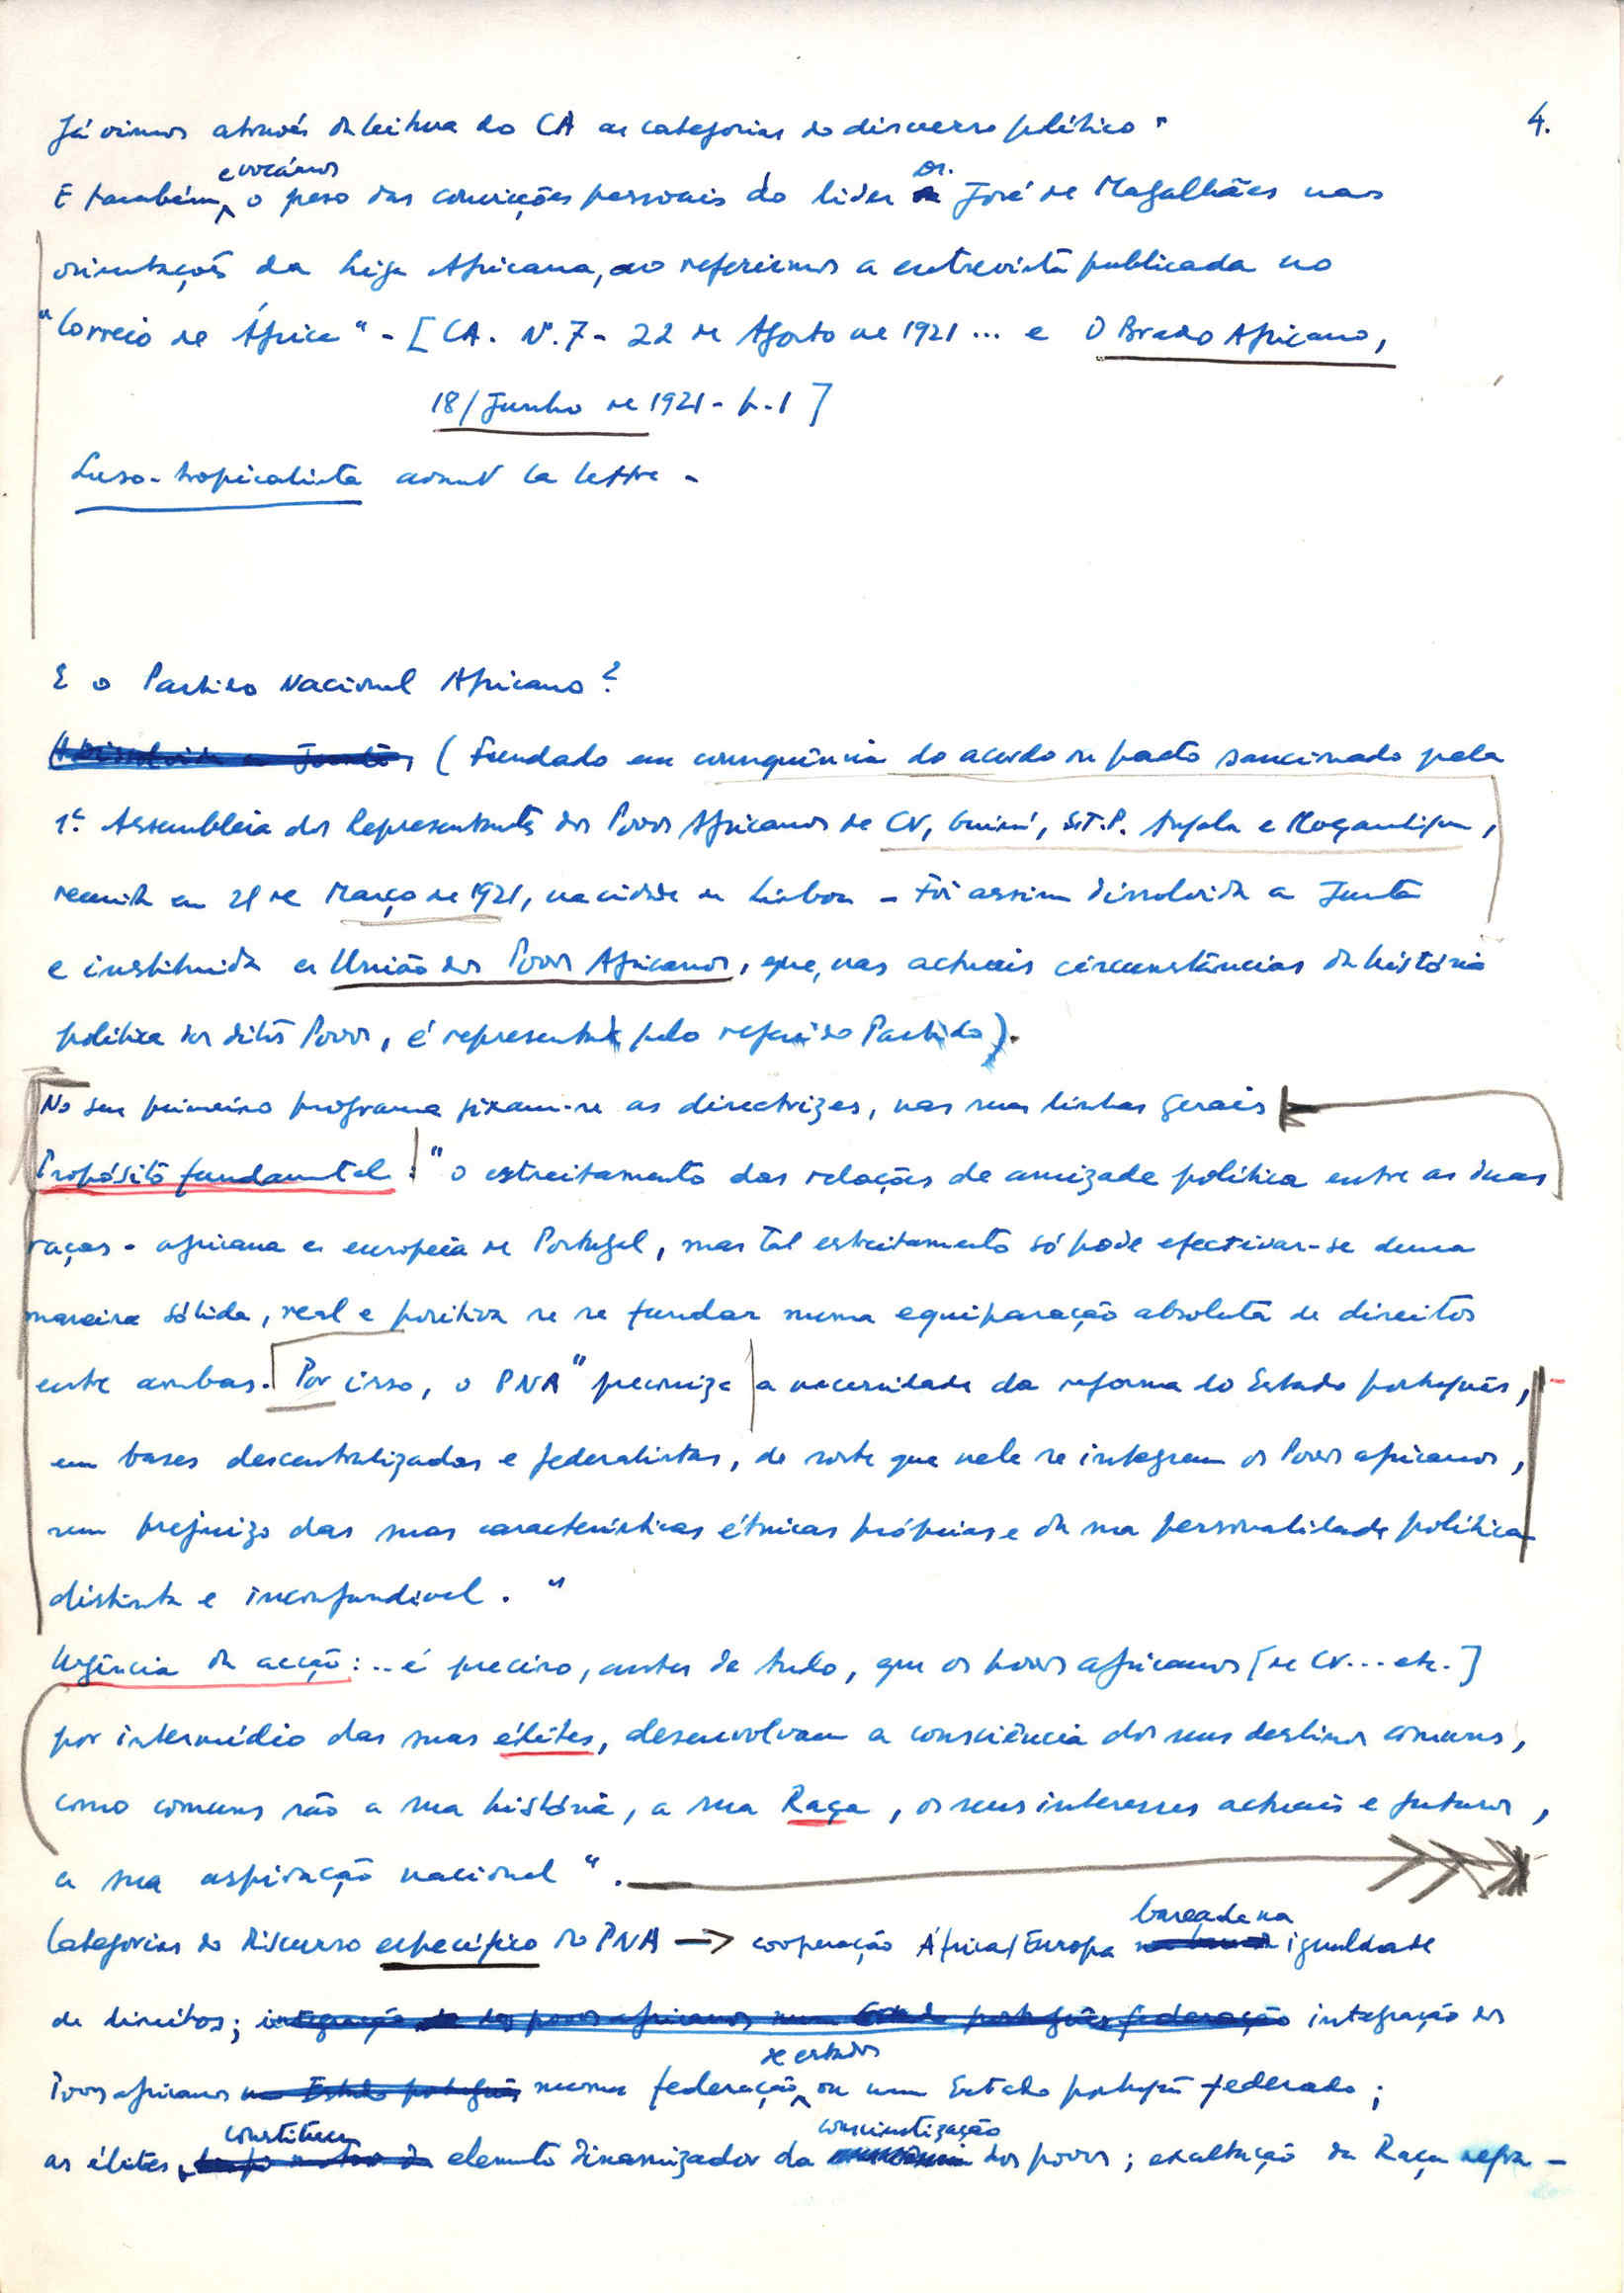 4.
Já vimos através da leitura do CA as categorias do discurso político.
E também evocámos o peso das convicções pessoais do líder Dr. José de Magalhães nas
orientações da Liga Africana, ao referirmos a entrevista publicada no
"Correio de África" - [CA. Nº. 7 - 22 de Agosto de 1921 ... e O Brado Africano,
18/Junho de 1921 - p. 1]
Luso-tropicalista avant la lettre -
E o Partido Nacional Africano?
(Fundado em consequência do acordo ou pacto sancionado pela
1ª. Assembleia dos Representantes dos Povos Africanos de CV, Guiné, S.T.P. Angola e Moçambique,
reunida em 28 de Março de 1921, na cidade de Lisboa - Foi assim dissolvida a Junta
e instituida a União dos Povos Africanos, que, nas actuais circunstâncias da história
política dos ditos Povos, é representada pelo referido Partido).
No seu primeiro programa fixam-se as directrizes, nas suas linhas gerais
Propósito fundamental: "o estreitamento das relações de amizade política entre as duas
raças - africana e europeia de Portugal, mas tal estreitamento só pode efectivar-se duma
maneira sólida, real e positiva se se fundar numa equiparação absoluta de direitos
entre ambas. Por isso, o PNA" preconiza a necessidade da reforma do Estado português,
em bases descentralizadas e federalistas, de sorte que nele se integrem os Povos africanos,
sem prejuizo das suas características étnicas próprias e da sua personalidade política
distinta e inconfundivel."
Urgência da acção: .. é preciso, antes de tudo, que os povos africanos [de CV... etc.]
por intermédio das suas élites, desenvolvam a consciência dos seus destinos comuns,
como comuns são a sua história, a sua Raça, os seus interesses actuais e futuros,
a sua aspiração nacional".
Categorias do Discurso específico do PNA → cooperação África/Europa baseada na igualdade
de direitos; integração dos povos africanos num Estado português federação integração dos
Povos africanos no Estado português numa federação de estados ou num Estado português federado;
as élites, constituem elemento dinamizador da consciencialização dos povos; exaltação da Raça negra -